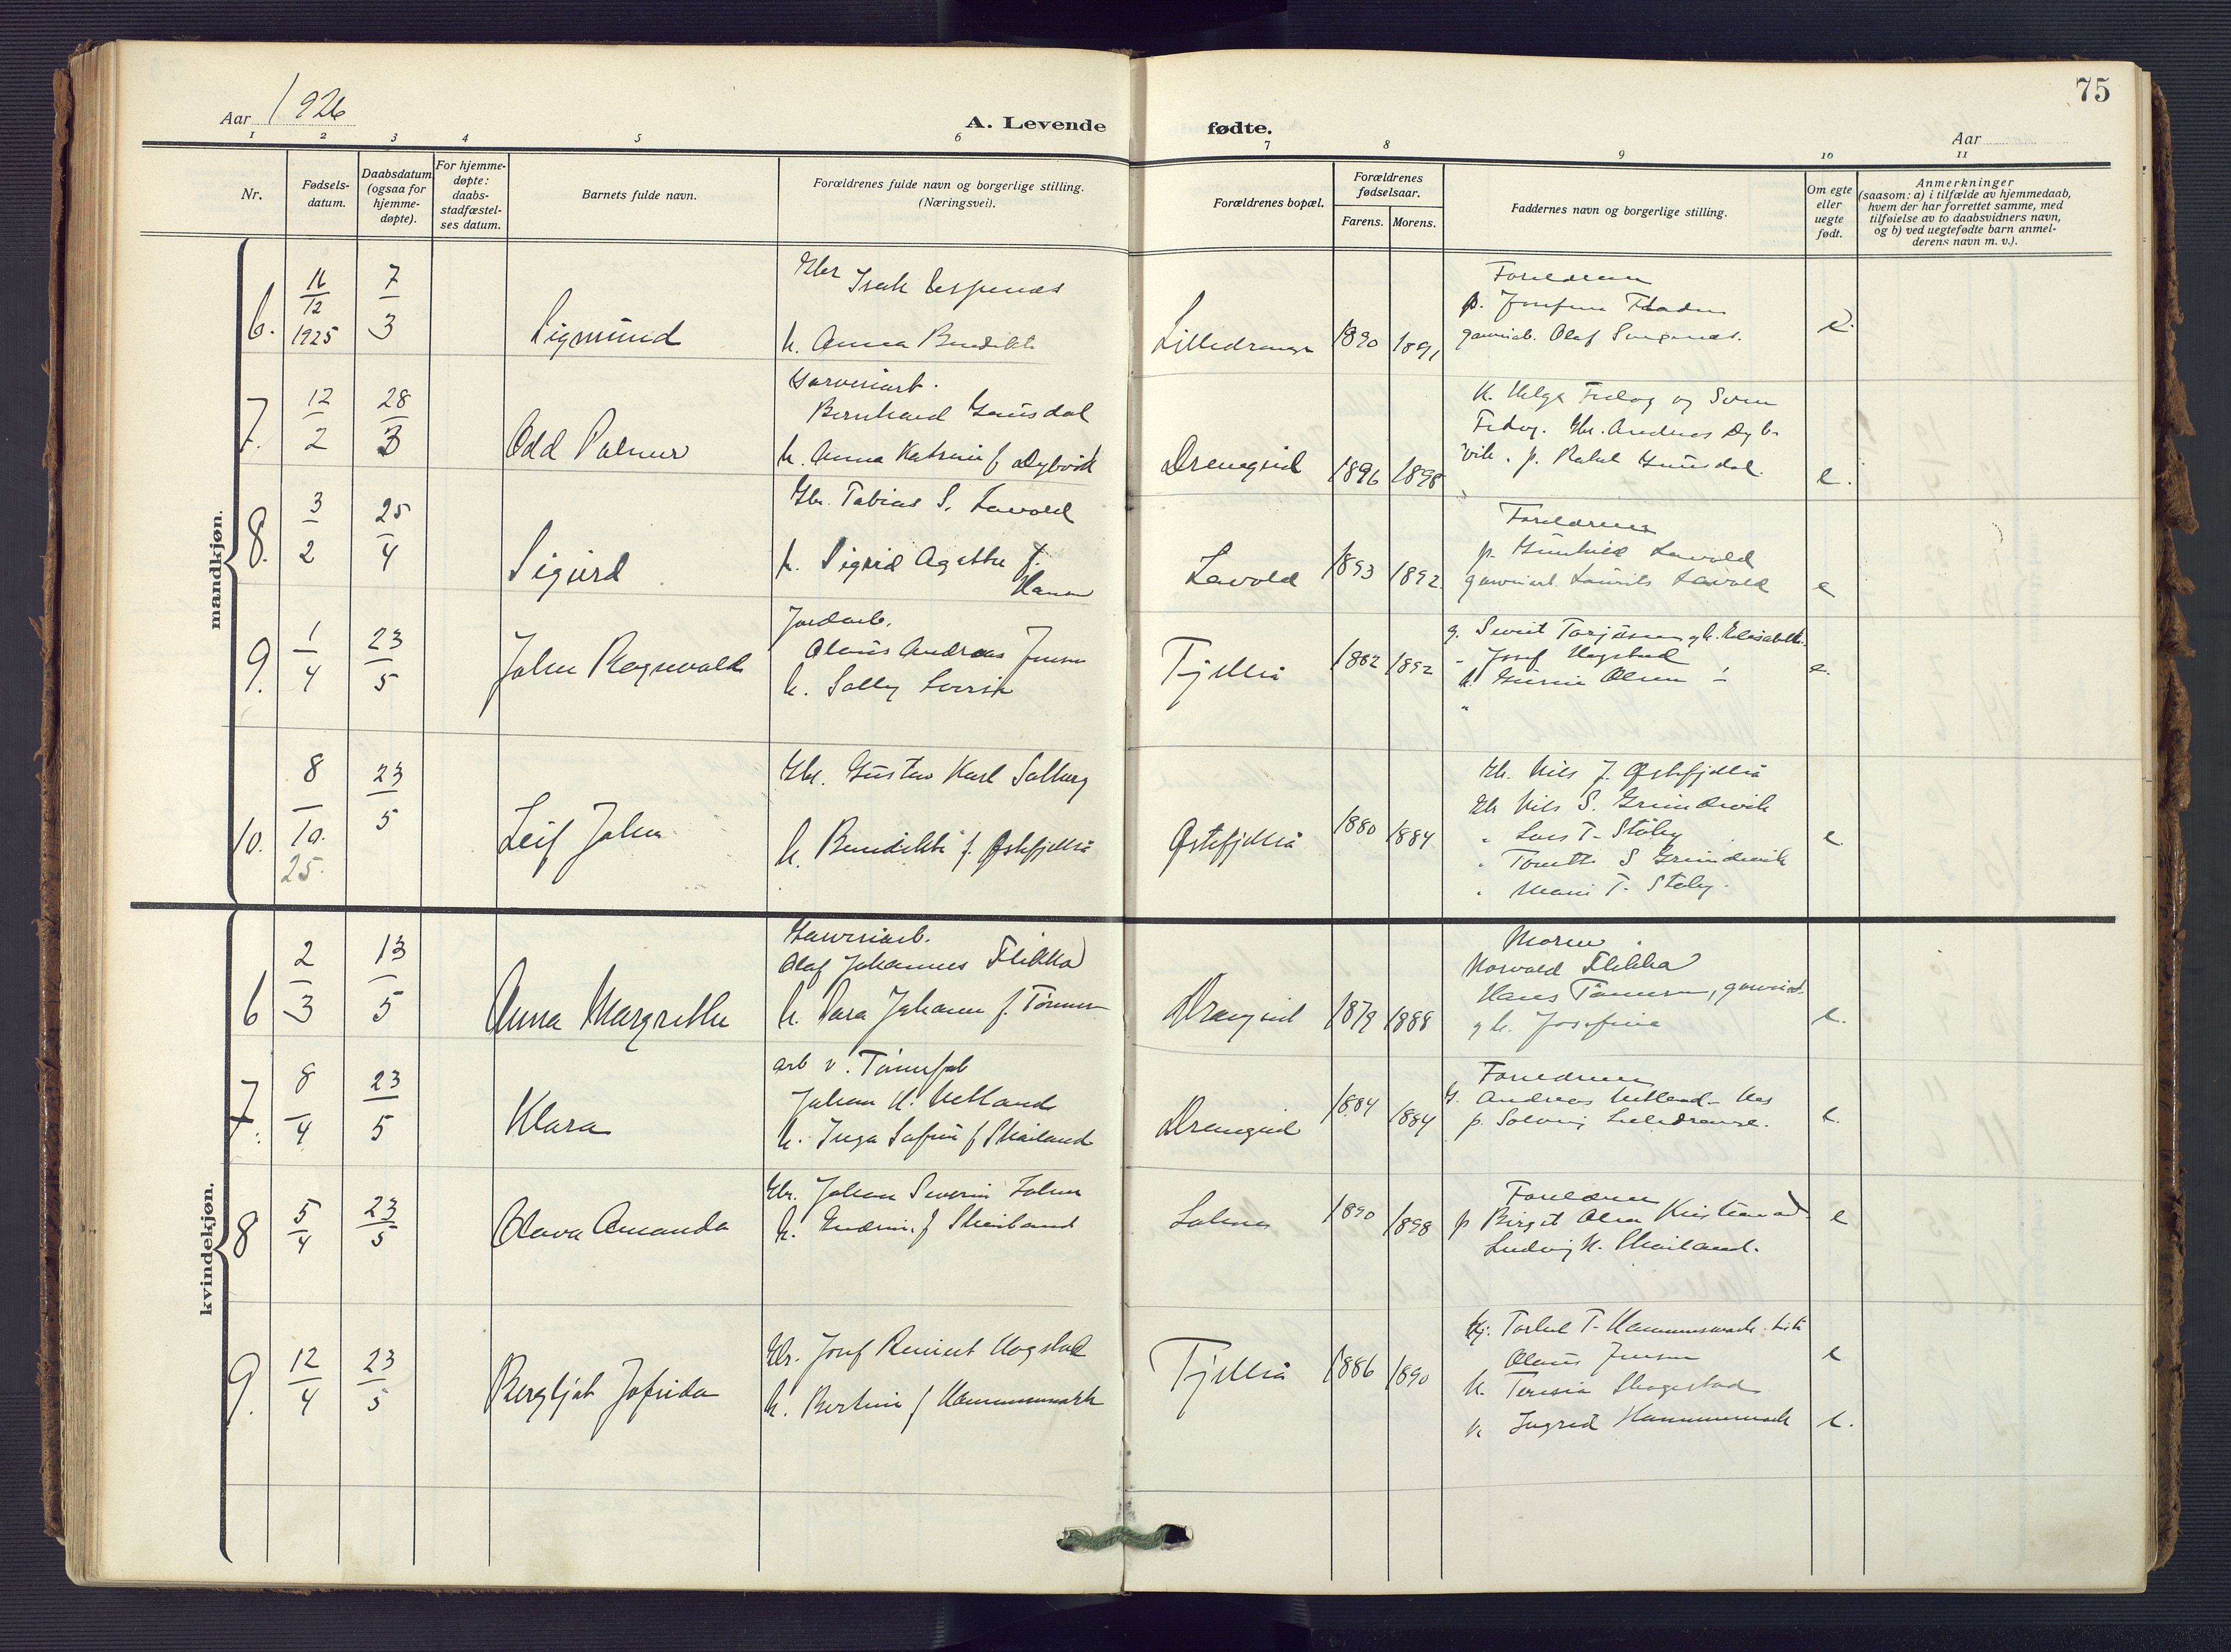 75
Aar 1926
A. Levende fødte.
Aar
1 2 3 4 5 6 7 8 9 10 11
Nr.
Fødsels-
datum.
Daabsdatum
(ogsaa for
hjemme-
døpte).
For hjemme-
døpte:
daabs-
stadfæstel-
ses datum.
Barnets fulde navn.
Forældrenes fulde navn og borgerlige stilling.
(Næringsvei).
Forældrenes bopæl.
Forældrenes
fødselsaar.
Farens. Morens.
Faddernes navn og borgerlige stilling.
Om egte
eller
uegte
født.
Anmerkninger
(saasom: a) i tilfælde av hjemmedaab,
hvem der har forrettet samme, med
tilføielse av to daabsvidners navn,
og b) ved uegtefødte barn anmel-
derens navn m. v.).
mandkjøn.
6. 16/12 1925 7/3 Sigmund
Gbr Isak Espenes
h. Anna Benedikte
Lilledrange 1890 1891
Forældrene
p. Josefine
garveriarb. Olaf
e.
7. 12/2 28/3 Odd Palmer
Garveriarb.
Bernhard Gausdal
h. Anna Katrine f Dybvik
Drengeid 1896 1898
K. Helga Fedog og Sven
Fedog. Gbr. Andreas Dyb-
vik. p. Rakel Gausdal.
e.
8. 3/2 25/4 Sigurd
Gbr. Tobias S. Lavold
h. Sigrid Agathe f.
Lavold 1893 1892
Forældrene
p. Gunhild Lavold
garveriarb. Laurits Lavold
e
9. 1/4 23/5 John Ragnvald
Jordarb.
Olaus Andreas Jensen
h. Solly
Fjellså 1882 1892
g. Sivert Torjusen g h. Elisabeth.
" Josef Hogstad
k. Gurine Olsen
"
e.
10. 8/10. 25. 23/5 Leif John
Gbr. Gustav Karl Solberg
h. Benedikte f. Østefjellså
Østefjellså 1880 1884
Gb. Nils J. Østefjellså
Gbr Nils S. Grundevik
" Lars T. Støly
" Tomette S Grundevik
" Marie T. Støly.
e
kvindekjøn.
6 2/3 13/5 Anna Margrethe
Garveriarb.
Olaf Johannes Flikka
h. Sara Johanne f. Tønnesen
Drengeid 1879 1888
Moren.
Norvald Flikka
Hans Tønnesen, garveriarb.
g h. Josefine
e.
7. 8/4 23/5 Klara
arb v. Tønnefab
Johan K. Netland
h. Inga Sofie f Skailand
Drengeid 1884 1884
Forældrene
G. Andreas Netland
p. Solveig Lilledrange.
e.
8 5/4 23/5 Olava Amanda
Gbr. Johan Severin
h. f Skailand
1890 1898
Forældrene
p Birgit Olsen Kristiansand
Ludvig K. Skailand.
e
9. 12/4 23/5 Bergljot Jofrida
Gbr. Josef Reinert Hogstad
h. Bertine f Hammersmark
Fjellså 1886 1890
Kj. Torkel T. Hammersmark
Olaus Jensen
k. Teresia Skogestad
k Ingrid Hammersmark
e
e.